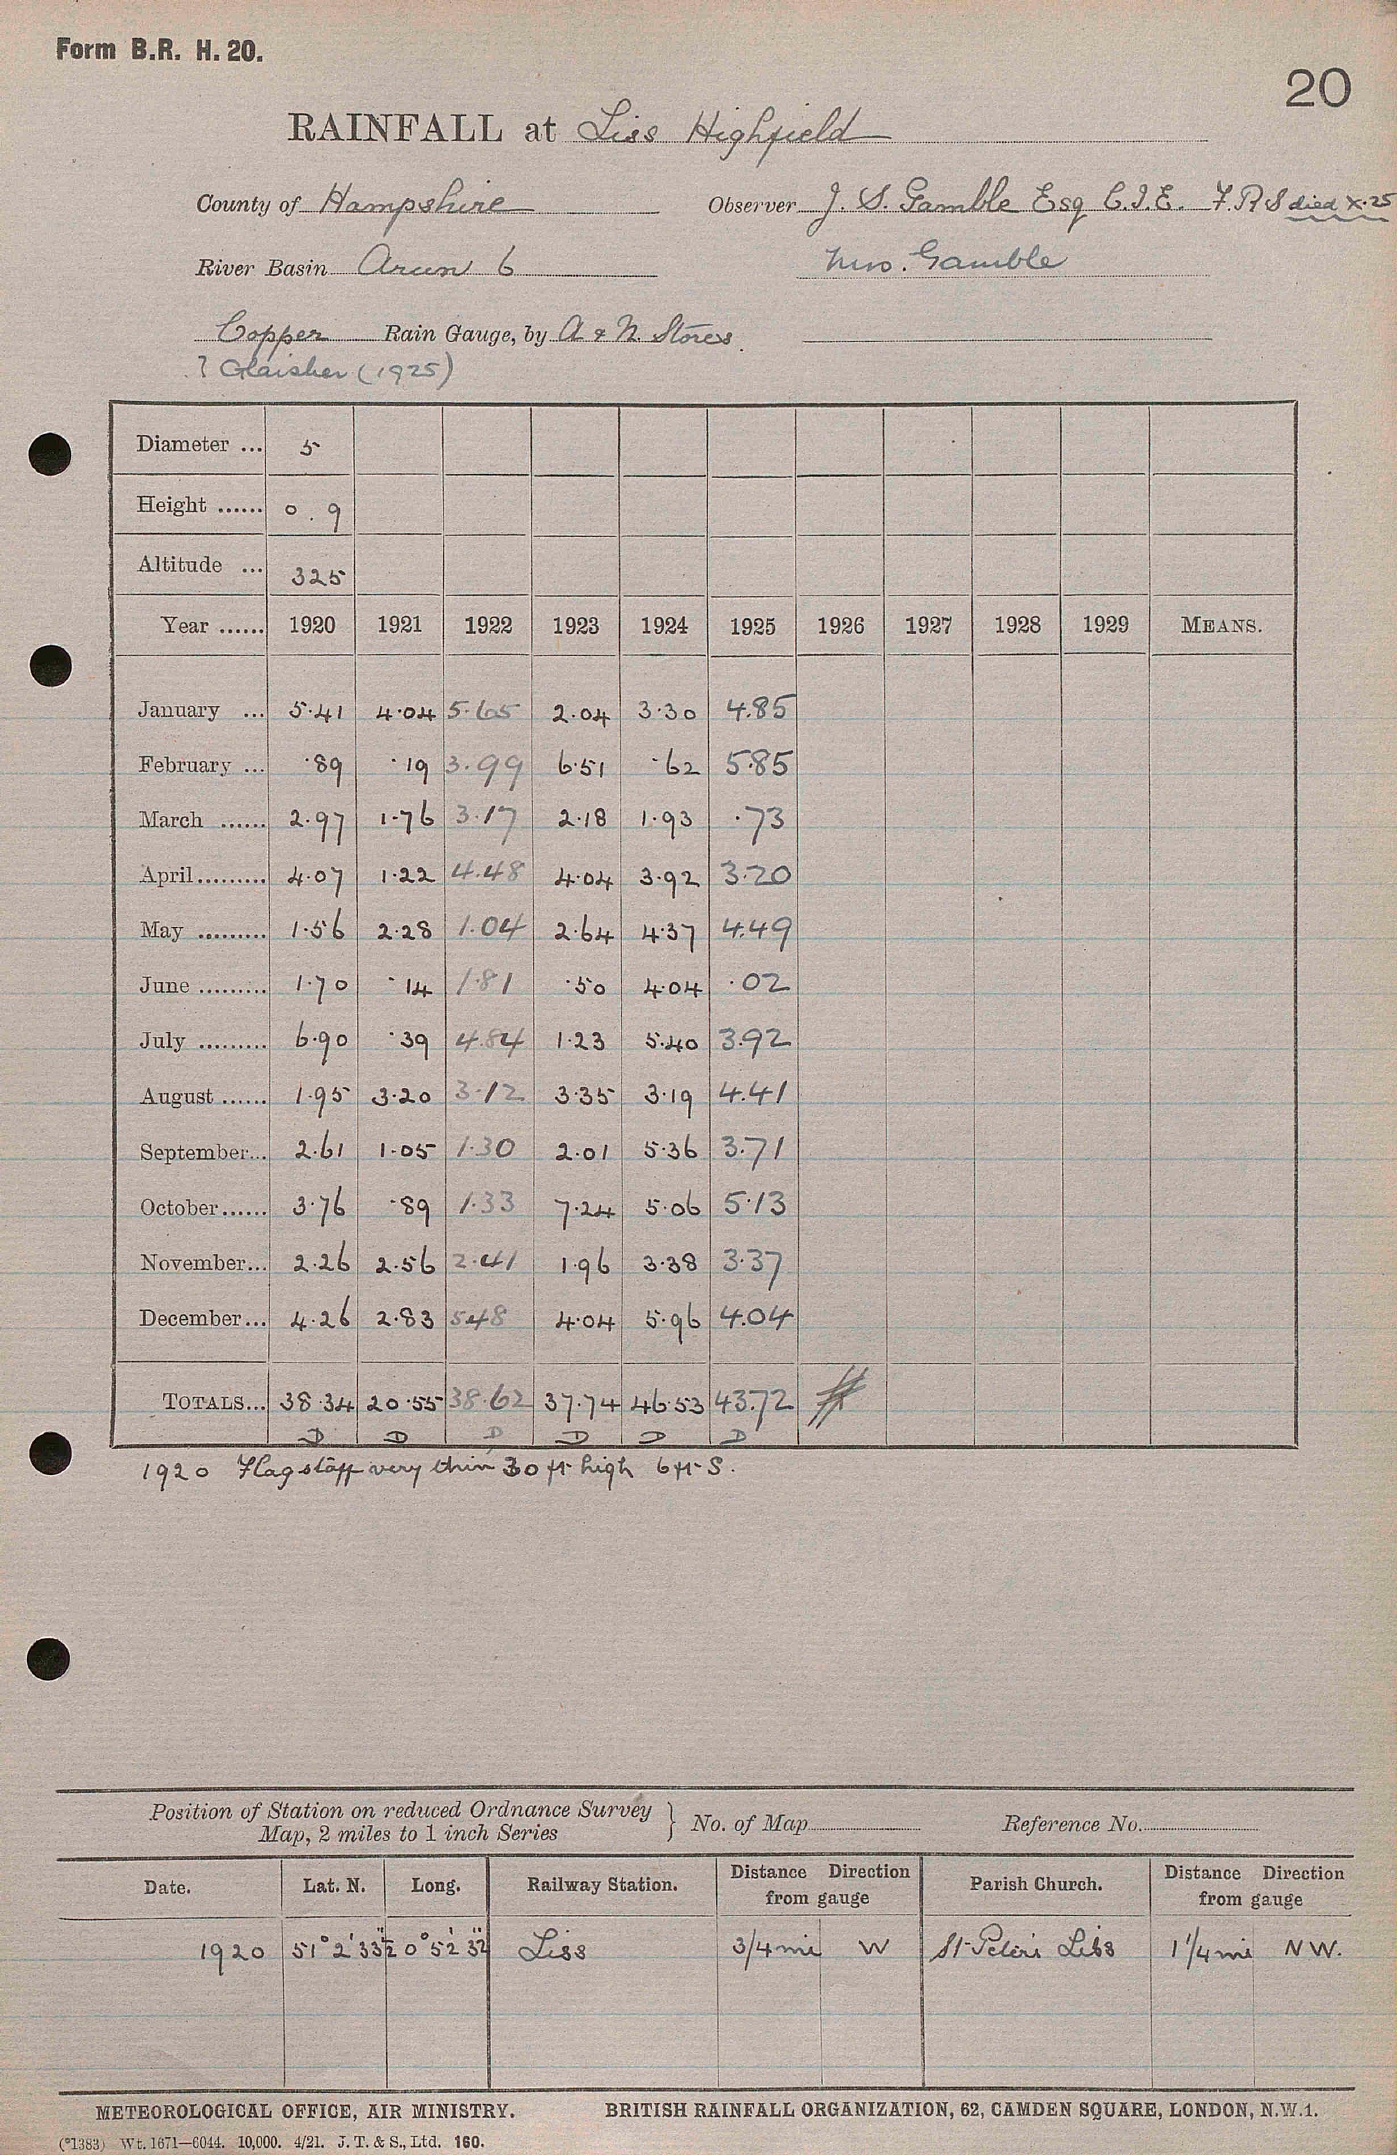 Form B.R. H. 20.
20
RAINFALL at Liss Highfield
County of Hampshire Observer J. S. Gamble Esq C.I.E. F.R.S died X.25
River Basin Arun 6 Mrs. Gamble
Copper Rain Gauge, by A & N. Stores
? Glaisher (1925)
Diameter ... 5
Height ...... 0 . 9
Altitude ... 325
Year ...... 1920 1921 1922 1923 1924 1925 1926 1927 1928 1929 MEANS.
January ... 5.41 4.04 5.65 2.04 3.30 4.85
February ... .89 .19 3.99 6.51 .62 5.85
March ...... 2.97 1.76 3.17 2.18 1.93 .73
April......... 4.07 1.22 4.48 4.04 3.92 3.20
May ......... 1.56 2.28 1.04 2.64 4.37 4.49
June ......... 1.70 .14 1.81 .50 4.04 .02
July ......... 6.90 .39 4.84 1.23 5.40 3.92
August ...... 1.95 3.20 3.12 3.35 3.19 4.41
September... 2.61 1.05 1.30 2.01 5.36 3.71
October...... 3.76 .89 1.33 7.24 5.06 5.13
November... 2.26 2.56 2.41 1.96 3.38 3.37
December... 4.26 2.83 5.48 4.04 5.96 4.04
TOTALS... 38.34 20.55 38.62 37.74 46.53 43.72
D D D D D D
1920 Flagstaff very thin 30 ft high 6 ft S.
Position of Station on reduced Ordnance Survey } No. of Map Reference No.
Map, 2 miles to 1 inch Series
Date. Lat. N. Long. Railway Station. Distance Direction from gauge Parish Church. Distance Direction from gauge
1920 51° 2' 33½" 0° 52' 32" Liss 3/4 mi W St Peter's Liss 1 1/4 mi NW.
METEOROLOGICAL OFFICE, AIR MINISTRY. BRITISH RAINFALL ORGANIZATION, 62, CAMDEN SQUARE, LONDON, N.W.1.
(*1383) Wt. 1671—6044. 10,000. 4/21. J. T. & S., Ltd. 160.